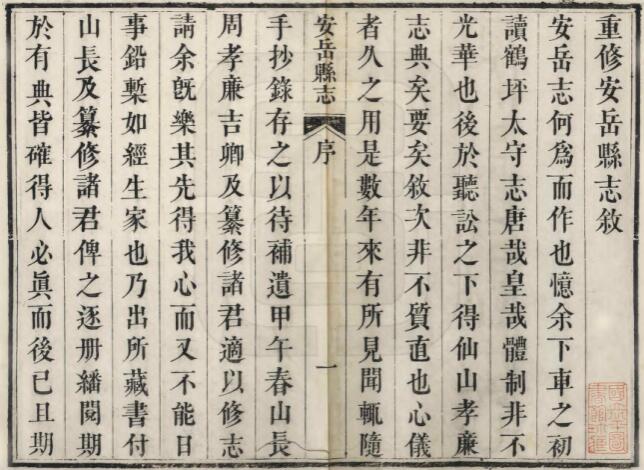 重修安岳縣志敘
安岳志何為而作也憶余下車之初
讀鶴坪太守志唐哉皇哉體制非不
光華也後於聽訟之下得仙山孝廉
志典矣要矣敘次非不質直也心儀
者久之用是數年來有所見聞輒隨
安岳縣志 序 一
手抄錄存之以待補遺甲午春山長
周孝廉吉卿及纂修諸君適以修志
請余旣樂其先得我心而又不能日
事鉛槧如經生家也乃出所藏書付
山長及纂修諸君俾之逐册繙閱期
於有典皆確得人必眞而後已且期